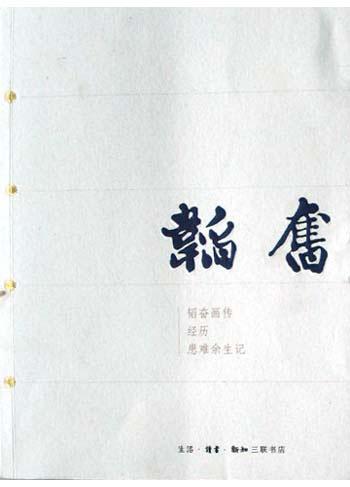 韜奮
韬奋画传
经历
患难余生记
生活·讀書·新知三联书店